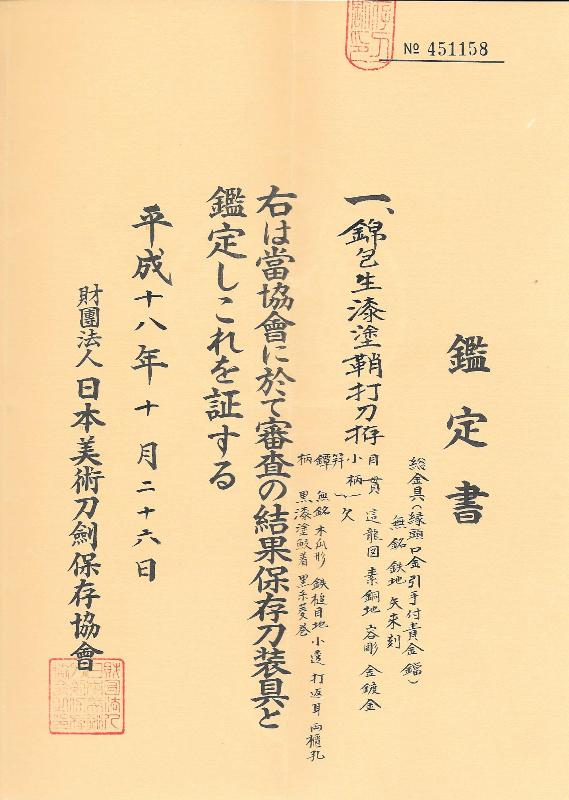 № 451158
鑑定書
一、錦包生漆塗鞘打刀拵
総金具(縁頭口金引手付責金鐺)
無銘 鉄地 矢来刻
目貫 這龍図 素銅地 容彫 金鍍金
小柄
笄 欠
鐔 無銘 木瓜形 鉄槌目地 小透 打返耳 両櫃孔
柄 黒漆塗鮫着 黒糸菱巻
右は當協會に於て審査の結果保存刀装具と
鑑定しこれを証する
平成十八年十月二十六日
財團法人日本美術刀劍保存協會